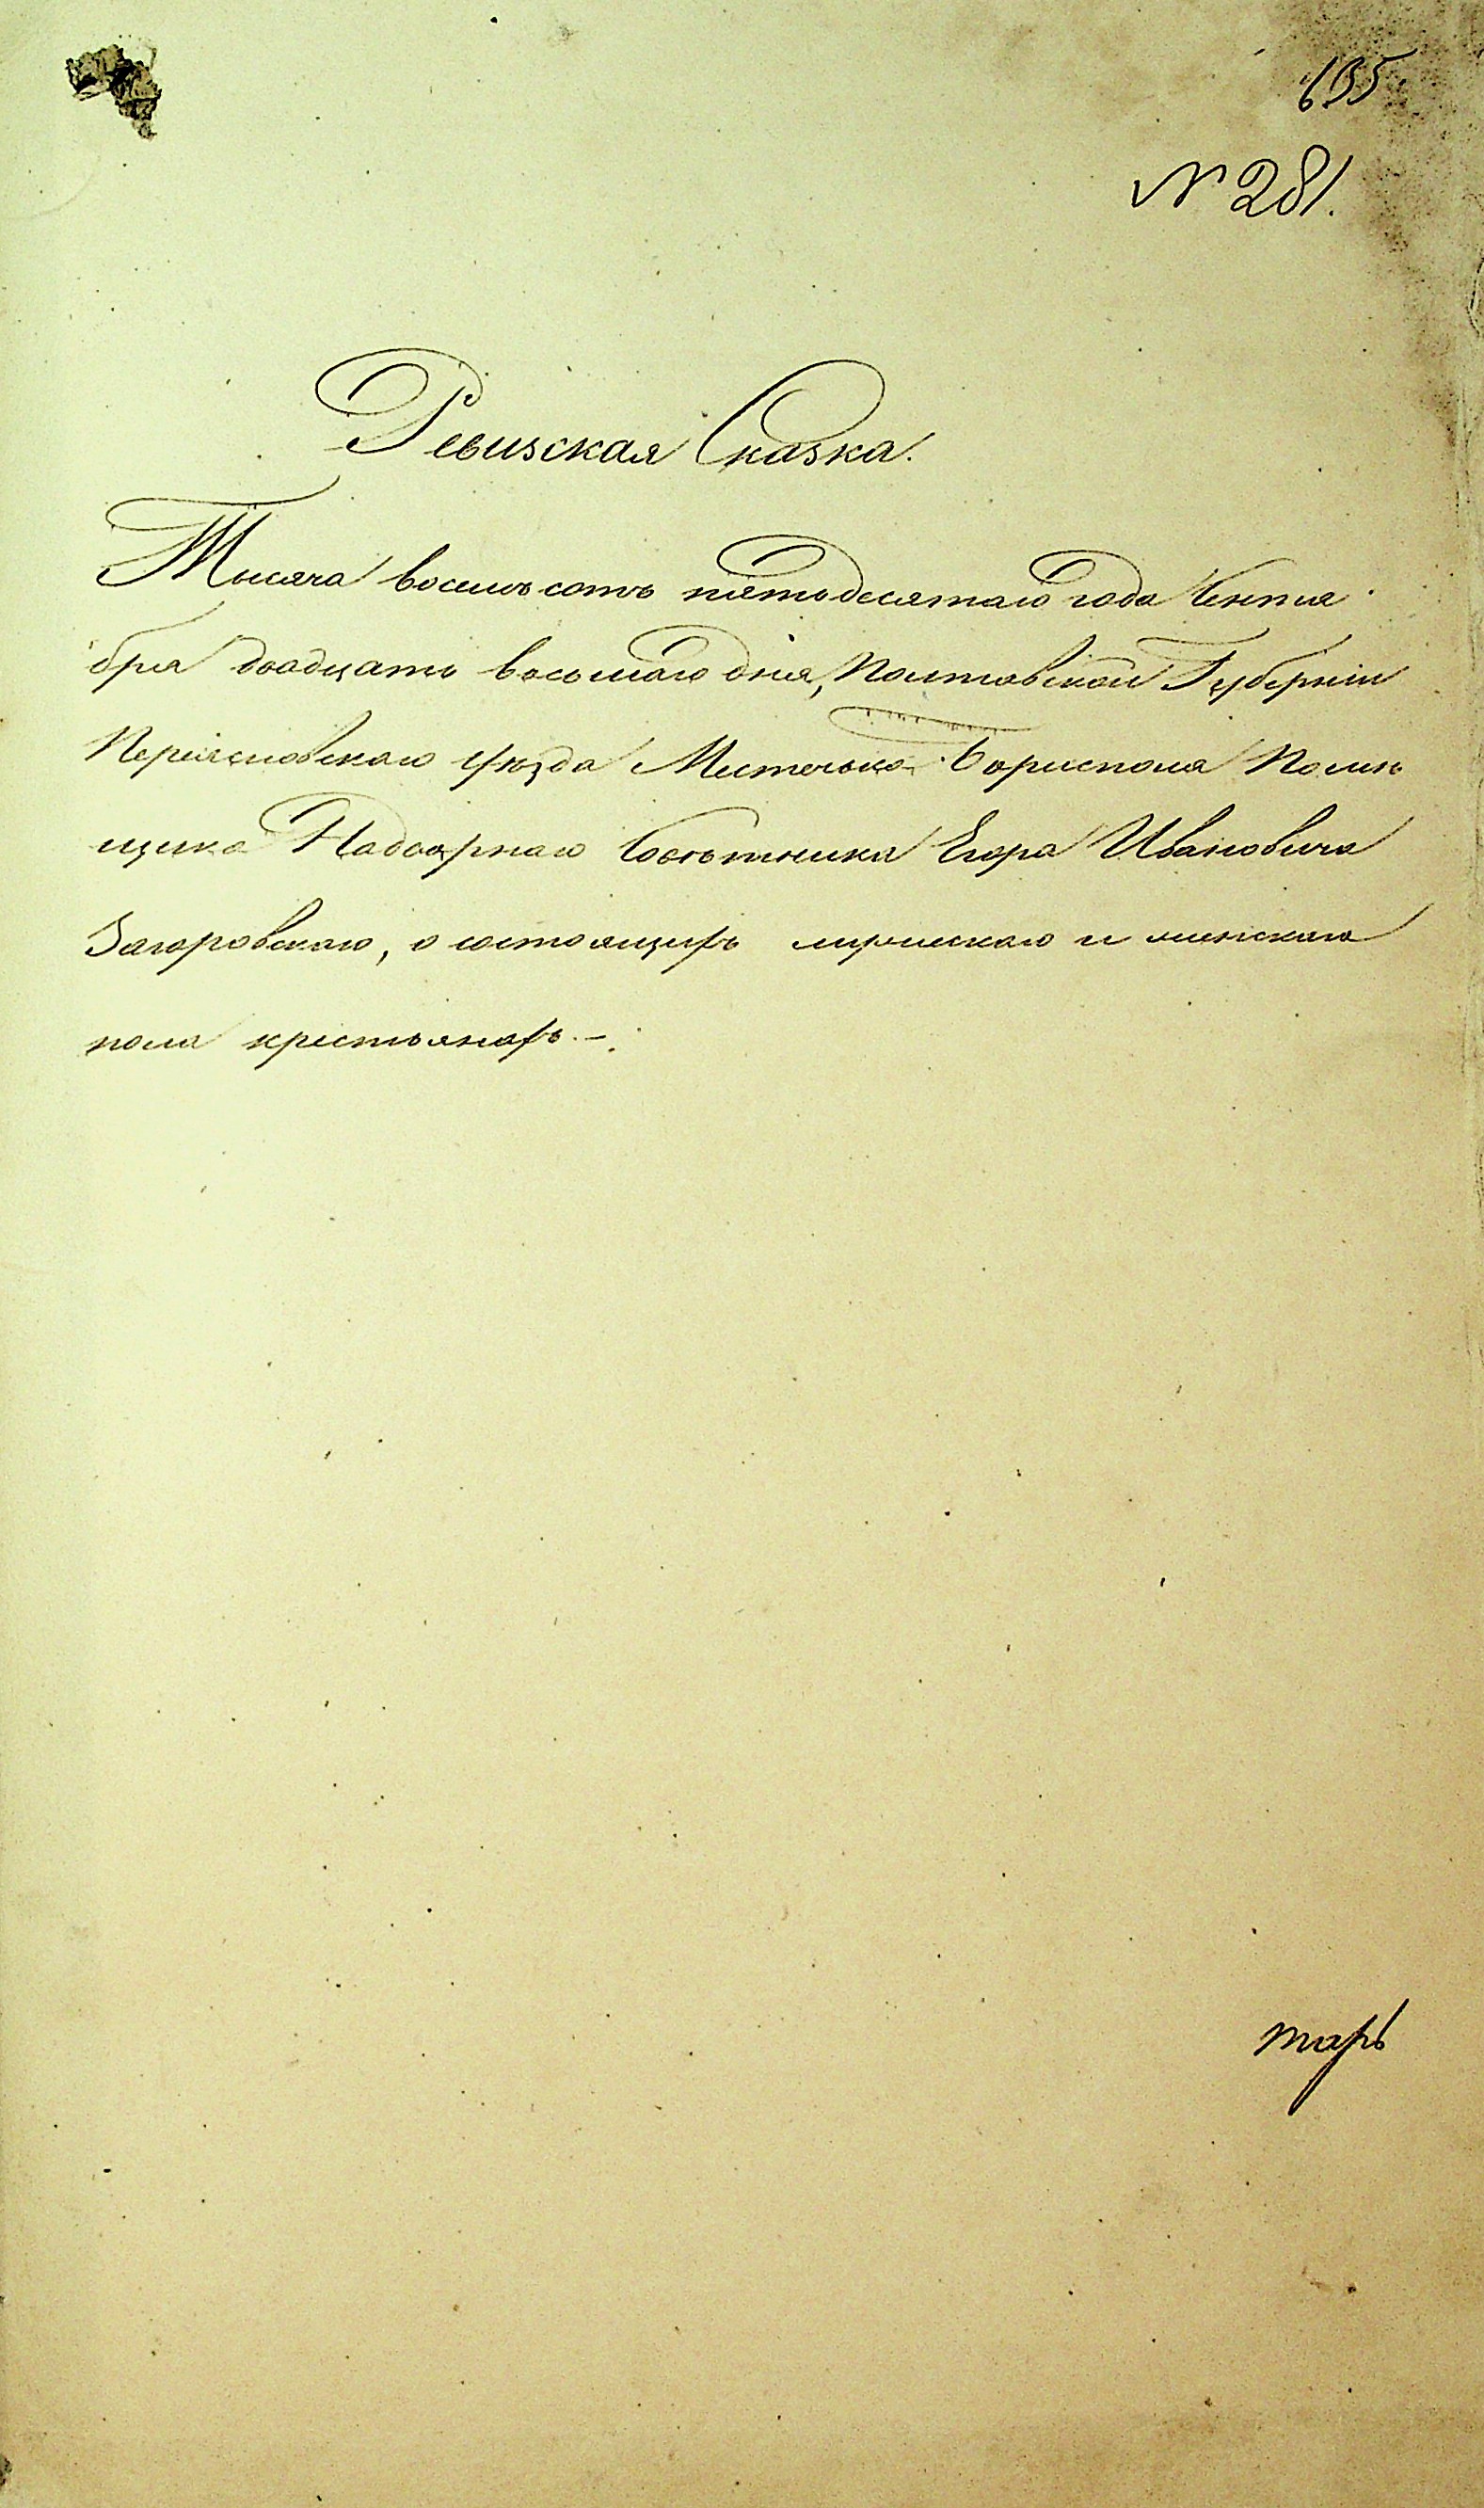 635.
№ 281.
Ревизская Сказка.
Тысяча восемъ сотъ пятьдесятаго года Сентя
бря двадцать восьмаго дня, Полтавской Губерніи
Переяслловскаго Уѣзда Местечька Борисполя Помѣ
щика Надворнаго Совѣтника Егора Ивановича
Загоровскаго, о состоящихъ мужескаго и женскаго
пола крестьянахъ.–
тарь